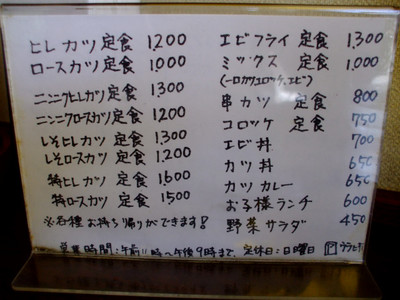 ヒレカツ定食 1,200
ロースカツ定食 1,000
ニンニクヒレカツ定食 1,300
ニンニクロースカツ定食 1,200
しそヒレカツ定食 1,300
しそロースカツ定食 1,200
特ヒレカツ定食 1,600
特ロースカツ定食 1,500
※各種お持ち帰りができます!
エビフライ定食 1,300
ミックス定食 1,000
(一口カツ,コロッケ,エビ)
串カツ定食 800
コロッケ定食 750
エビ丼 700
カツ丼 650
カツカレー 650
お子様ランチ 600
野菜サラダ 450
営業時間:午前11時〜午後9時まで、定休日:日曜日